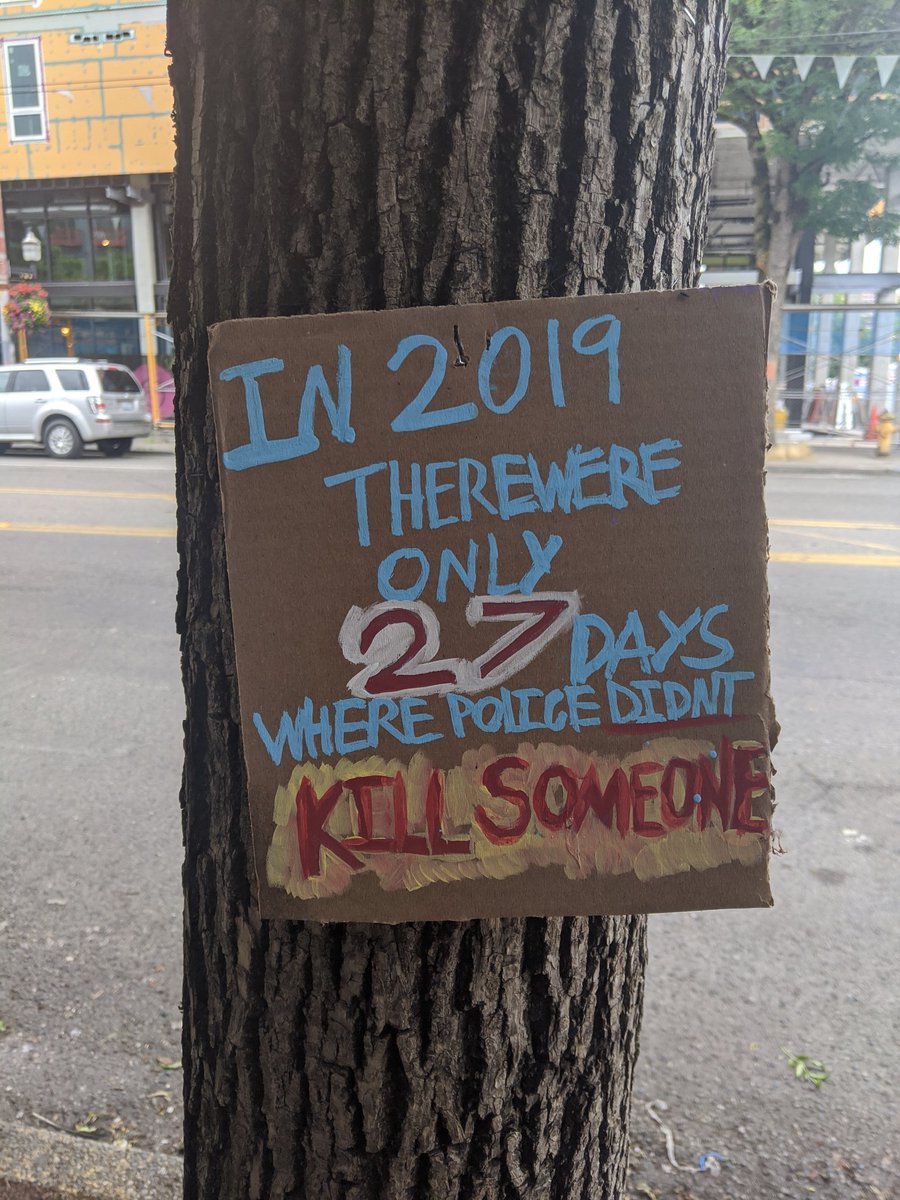 IN 2019
THERE WERE
ONLY
27 DAYS
WHERE POLICE DIDNT
KILL SOMEONE